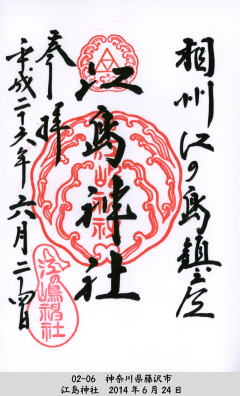 相州江の島鎮座
江島神社
奉拝
平成二十六年六月二十四日
江の嶋神社
02-06 神奈川県藤沢市
江島神社 2014年6月24日